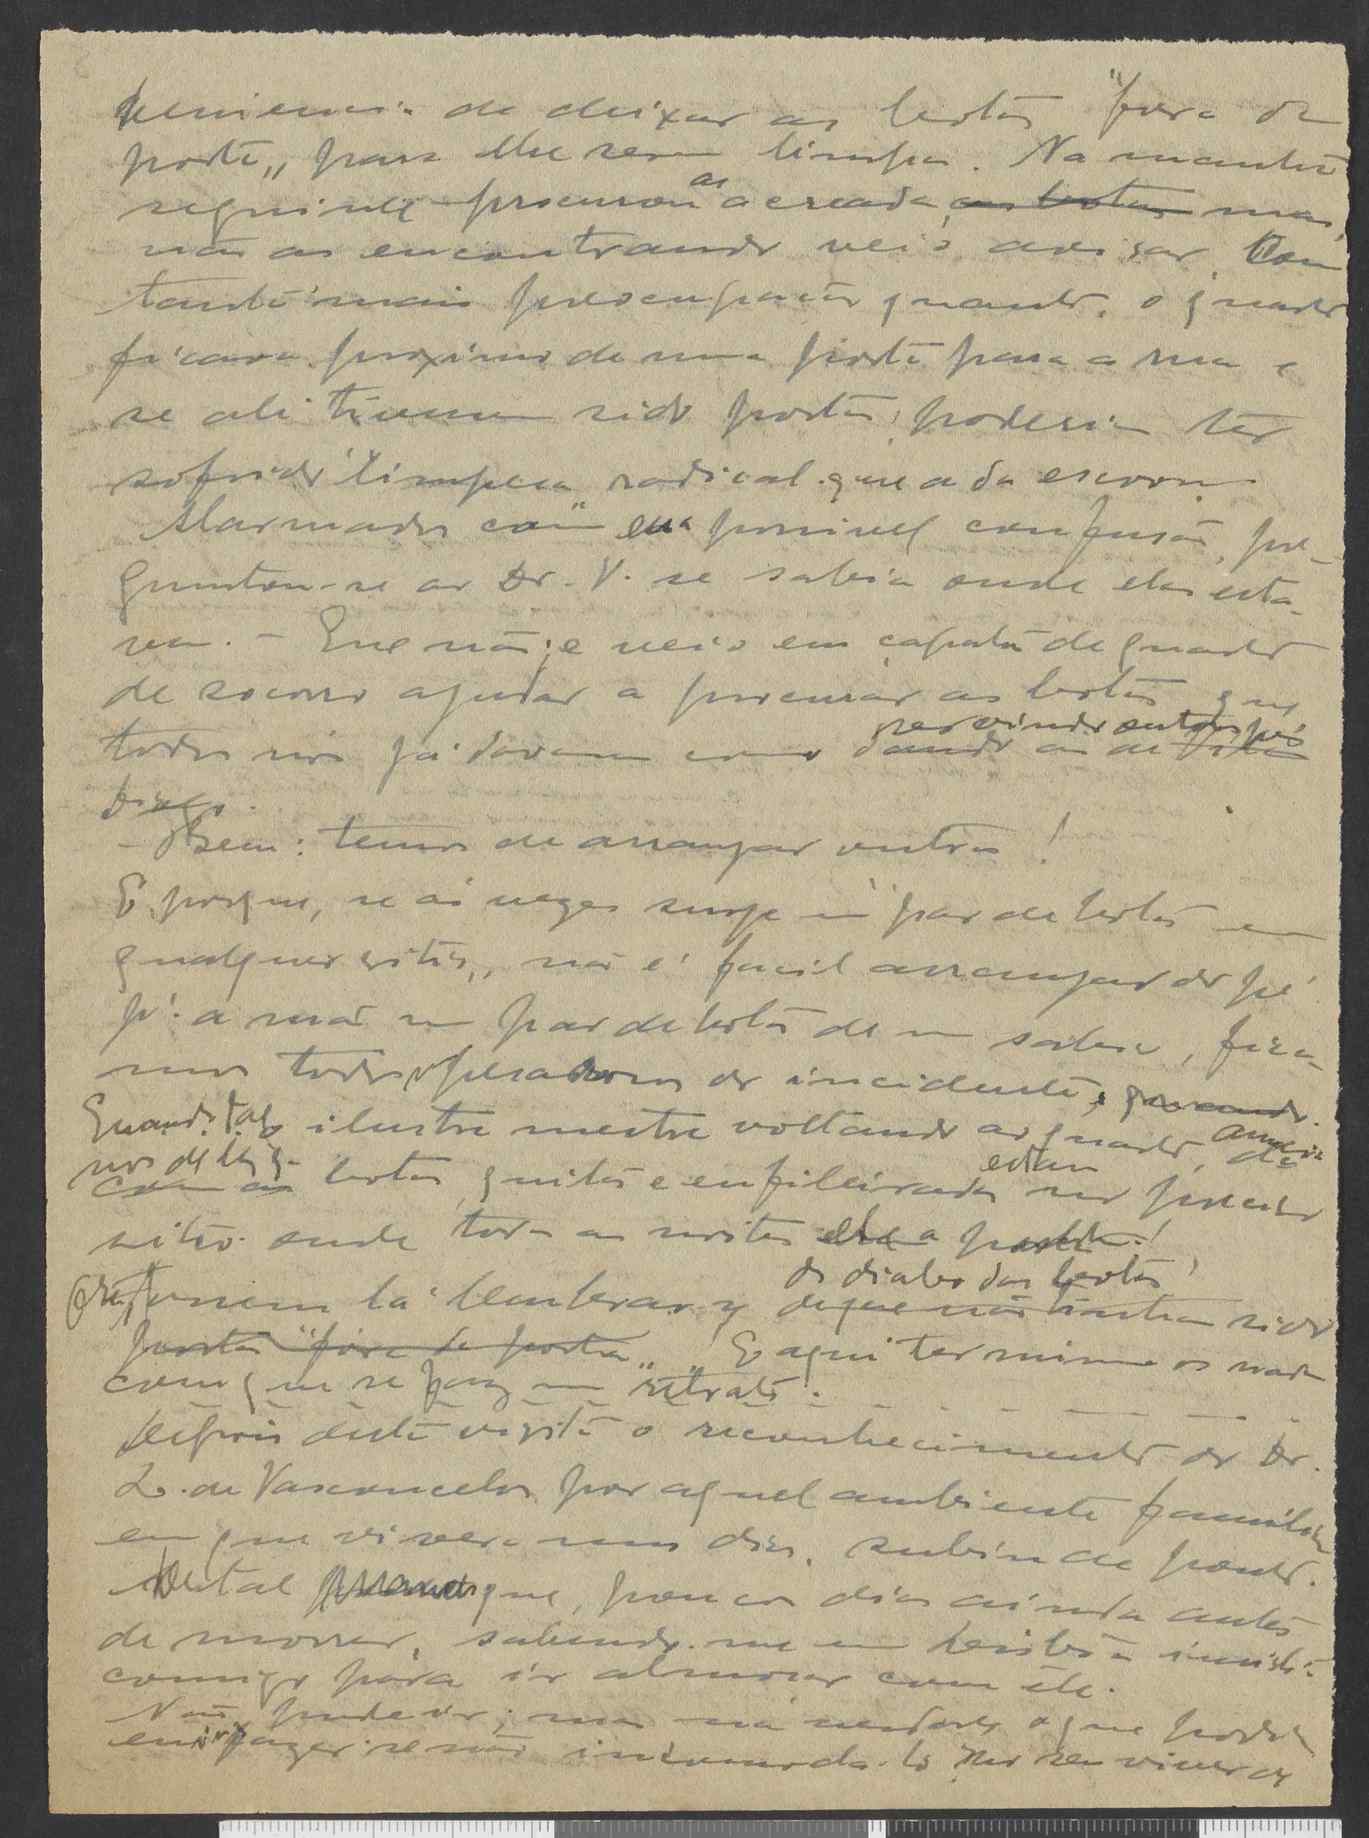 veniencia de deixar as botas "fora da
porta„ para lhe serem limpas. Na manhã
seguinte procurou as a creada as botas mas,
não as encontrando veio avisar. Com
tanto mais preocupação quanto, o quarto
ficava proximo de uma porta para a rua e
se ali tivessem sido postas, poderiam ter
sofrido limpesa radical que a da escova.
Alarmados com essa possivel confusão, pre-
guntou-se ao Dr. V. se sabia onde elas esta-
vam. - Que não; e veio em capata de quarto
de socorro ajudar a procurar as botas que
todos nós já davamos como
- Bem: temos de arranjar outras!
E porque, se ás vezes surge um par de botas em
qualquer sitio„ não é facil arranjar do pé
p.ª a mão um par de botas de um sabio, fica-
mos todos pesarosos do incidente,
Quando o ilustre mestre voltando ao quarto,
com as botas quitas e enfileiradas estavam no
sitio onde todas as noites
o diabo das botas!
Fossem lá lembrar-se de que não tinham sido
postas "fora da porta„ E aqui termina o modo
como que se faz um "retrato".
Depois desta visita o reconhecimento do Dr.
L. de Vasconcelos por aquel ambiente familiar
em que vivera uns dias, subiu de ponto.
De tal que, poucos dias ainda antes
de morrer, sabendo-me em Lisbôa insistia
comigo para ir almoçar com ele.
Não pude ir; mas na verdade o que
em ir fazer senão incomoda-lo no seu viver de